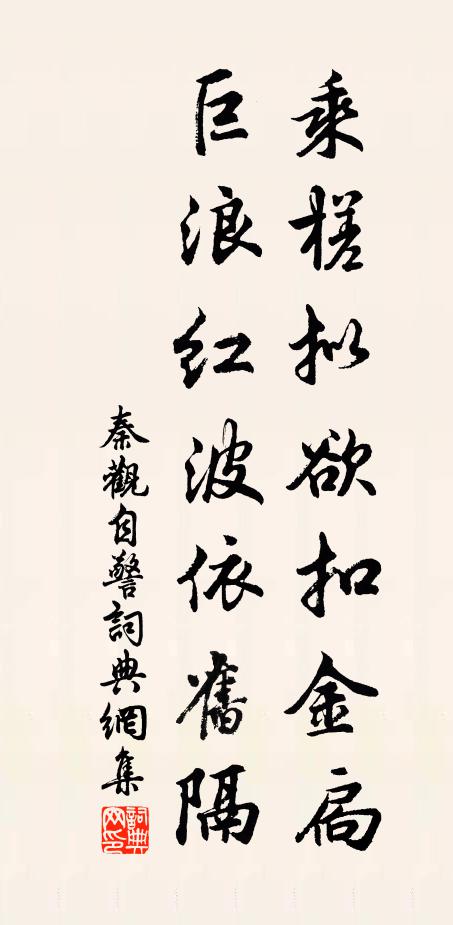 乘槎拟欲扣金扃
巨浪红波依舊隔
秦觀自警詞典網集
詞典網印